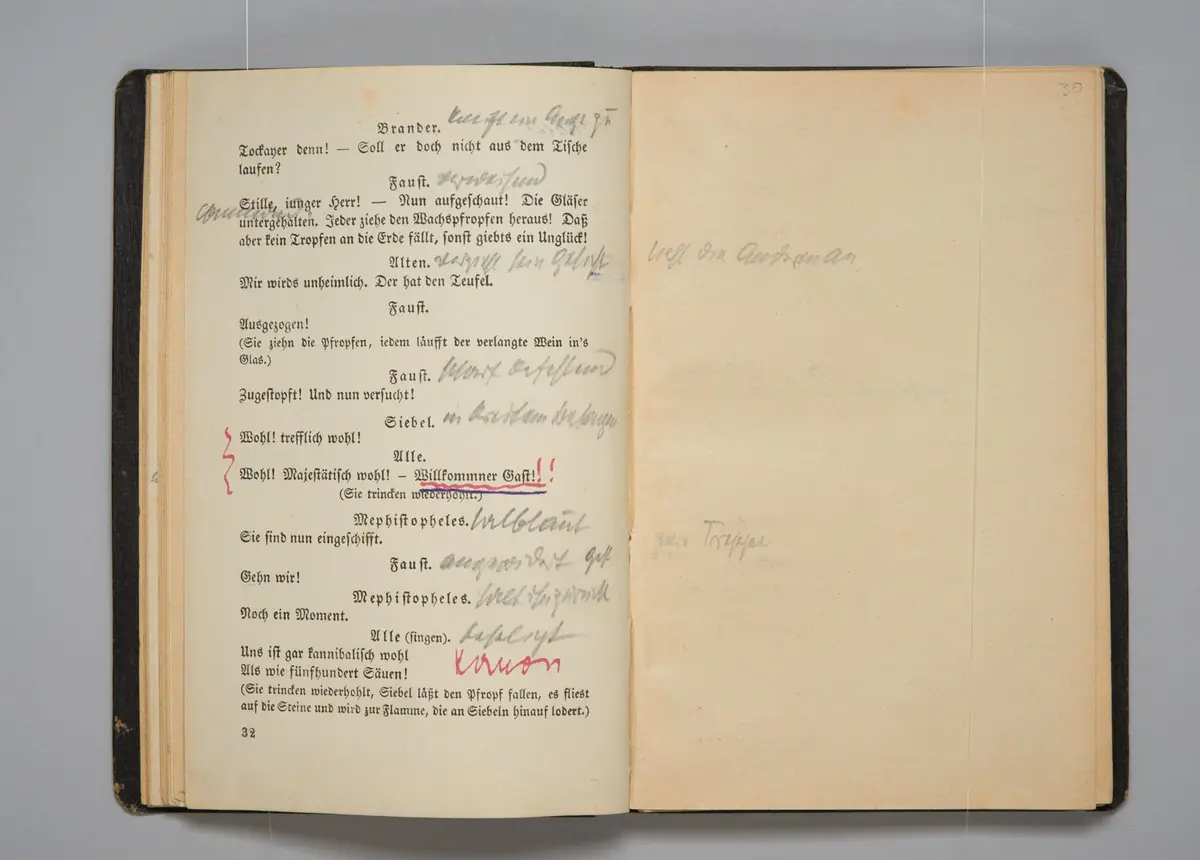 30
Brander. kneift ein Auge zu
Tockayer denn! — Soll er doch nicht aus dem Tische
laufen?
Faust. verweisend
Stille, iunger Herr! — Nun aufgeschaut! Die Gläser
untergehalten. Jeder ziehe den Wachspfropfen heraus! Daß
aber kein Tropfen an die Erde fällt, sonst giebts ein Unglück!
Alten. verzieht sein Gesicht
die Anderen an
Mir wirds unheimlich. Der hat den Teufel.
Faust.
Ausgezogen!
(Sie ziehn die Pfropfen, iedem läufft der verlangte Wein in's
Glas.)
Faust. scharf befehlend
Zugestopft! Und nun versucht!
Siebel. in
Wohl! trefflich wohl!
Alle.
Wohl! Majestätisch wohl! – Willkommner Gast!!!
(Sie trincken wiederhohlt.)
Mephistopheles. halblaut
Sie sind nun eingeschifft.
Faust. angewidert
Gehn wir!
Mephistopheles. hält ihn zurück
Noch ein Moment.
Alle (singen). beseligt
Uns ist gar kannibalisch wohl
Kanon
Als wie fünfhundert Säuen!
(Sie trincken wiederhohlt, Siebel läßt den Pfropf fallen, es fliest
auf die Steine und wird zur Flamme, die an Siebeln hinauf lodert.)
32